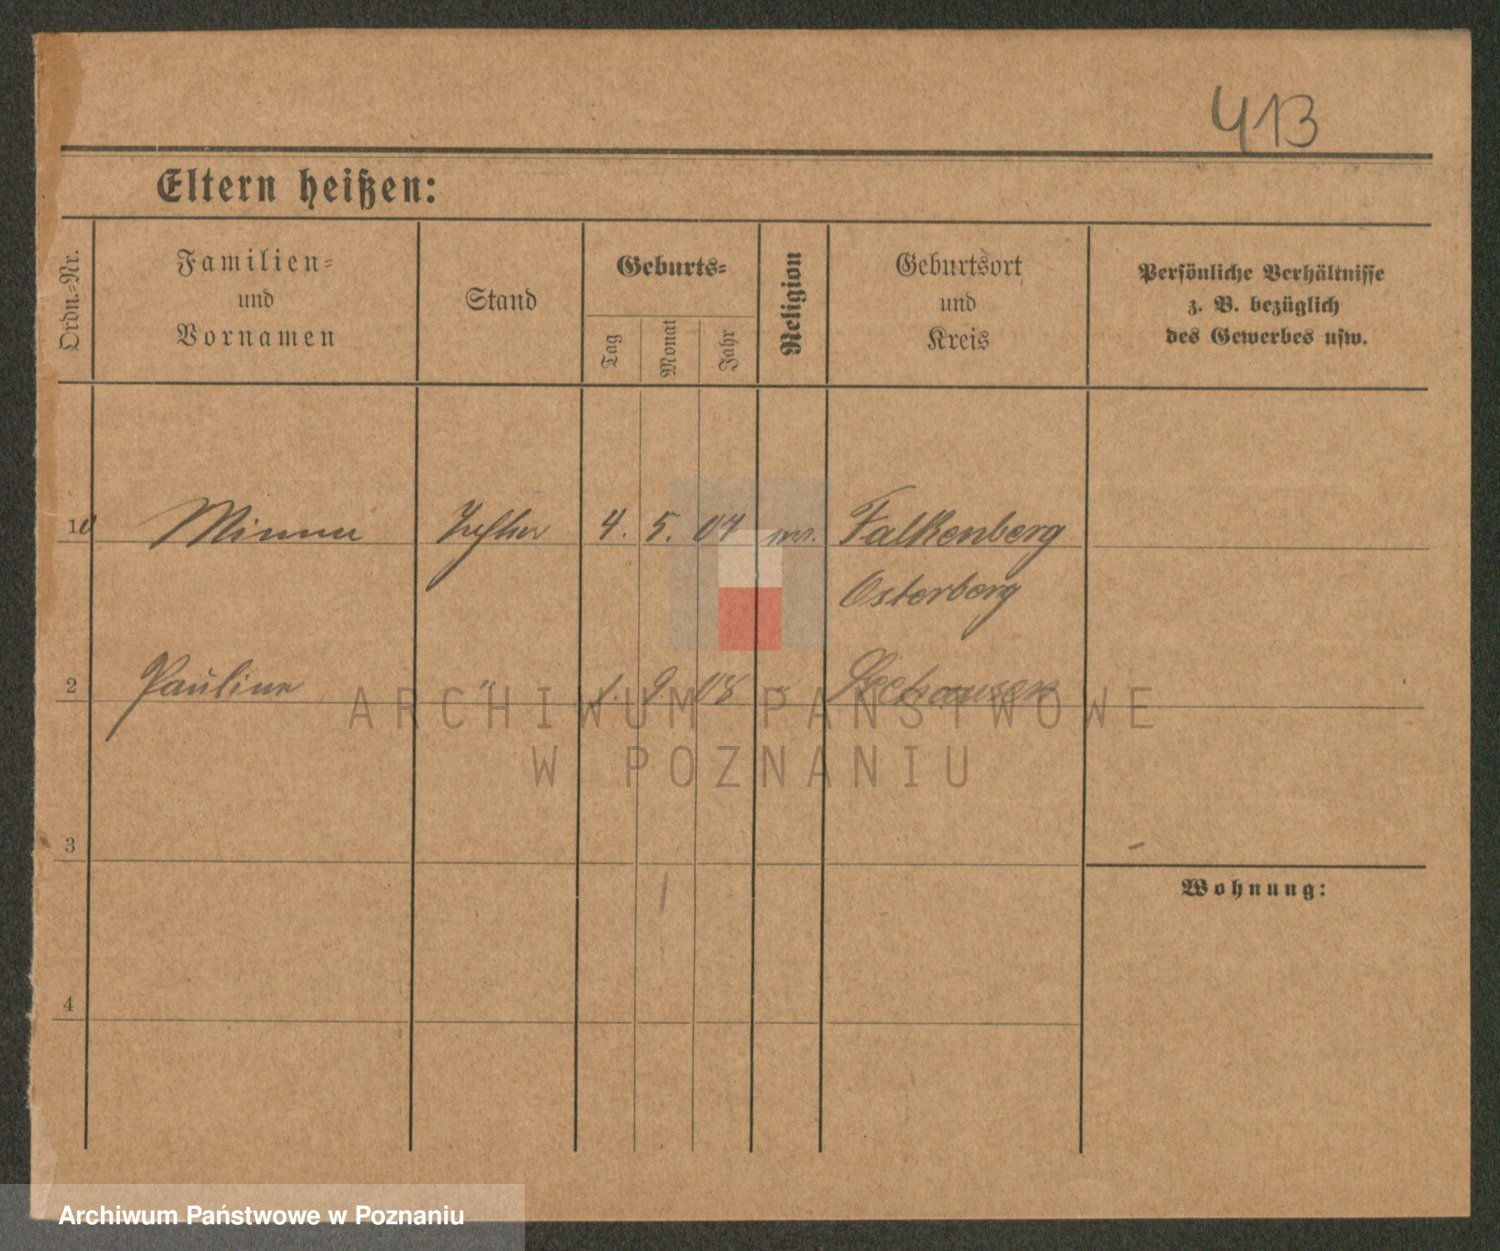 413
Eltern heißen:
Ordn.-Nr.
Familien-
und
Vornamen
Stand
Geburts-
Tag
Monat
Jahr
Religion
Geburtsort
und
Kreis
Persönliche Verhältnisse
z. B. bezüglich
des Gewerbes usw.
10 Minna Tochter 4. 5. 07 Falkenberg
Osterberg
2 Pauline " 1. 9. 08 Seehausen
3
4
Wohnung:
ARCHIWUM PAŃSTWOWE
W POZNANIU
Archiwum Państwowe w Poznaniu